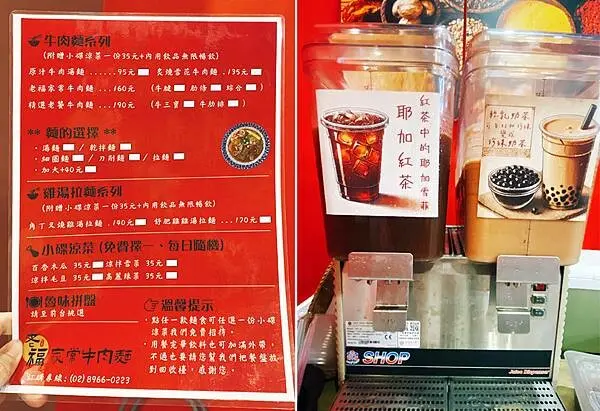 牛肉麵系列
(附贈小碟涼菜一份35元+內用飲品無限暢飲)
原汁牛肉湯麵......95元
炙燒雪花牛肉麵.135元
老福家常牛肉麵...160元
(牛腱 肋條 綜合)
精選老饕牛肉麵...190元
(牛三寶 牛肋排)
** 麵的選擇 **
·湯麵 / 乾拌麵
·細圓麵 / 刀削麵 / 拉麵
·加大+40元
雞湯拉麵系列
(附贈小碟涼菜一份35元+內用飲品無限暢飲)
角丁叉燒雞湯拉麵.140元
舒肥雞雞湯拉麵...170元
小碟涼菜(免費擇一、每日隨機)
百香木瓜 35元
涼拌雲菜 35元
涼拌毛豆 35元
高麗辣菜 35元
魯味拼盤
請至前台挑選
溫馨提示
·點任一款麵食可任選一份小碟
涼菜我們免費招待。
·用餐完畢飲料也可加滿外帶,
不過也要請您幫我們把餐盤放
到回收檯,感謝您。
老福家常牛肉麵
訂購專線:(02) 8966-0223
紅茶中的耶加雪菲
耶加紅茶
鮮乳奶茶
可自行加珍珠
變成
珍珠奶茶
SHOP
Juice Dispenser